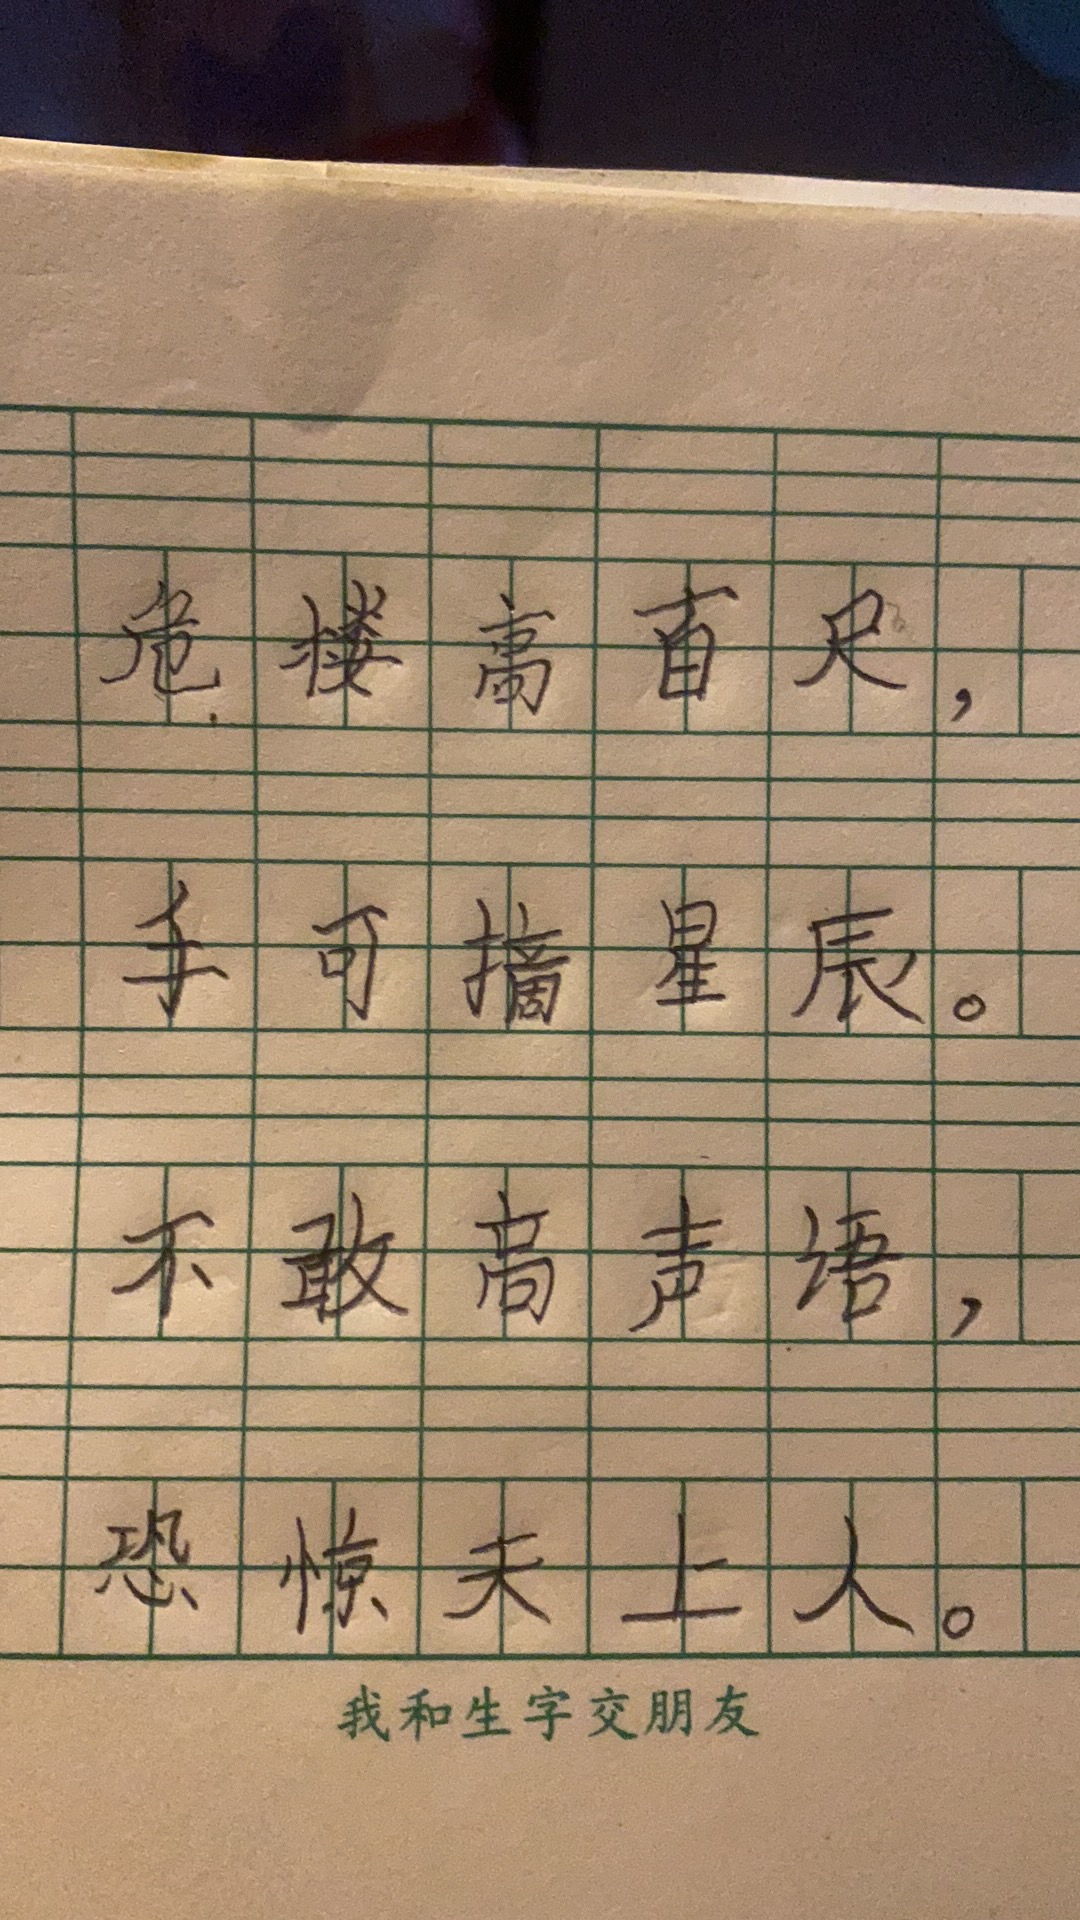 危楼高百尺，
手可摘星辰。
不敢高声语，
恐惊天上人。
我和生字交朋友